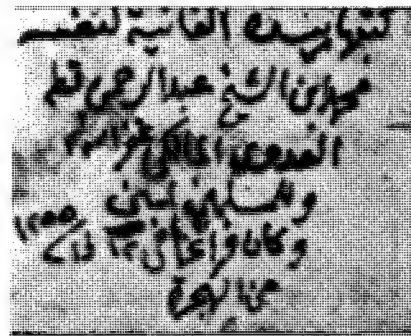 كتبها بيده الفانية لنفسه
محمد ابن الشيخ عبد الرحمن قطه
العدوي المالكي غفر الله له
وللمسلمين امين
وكان في ١٢٥٥
من الهجرة